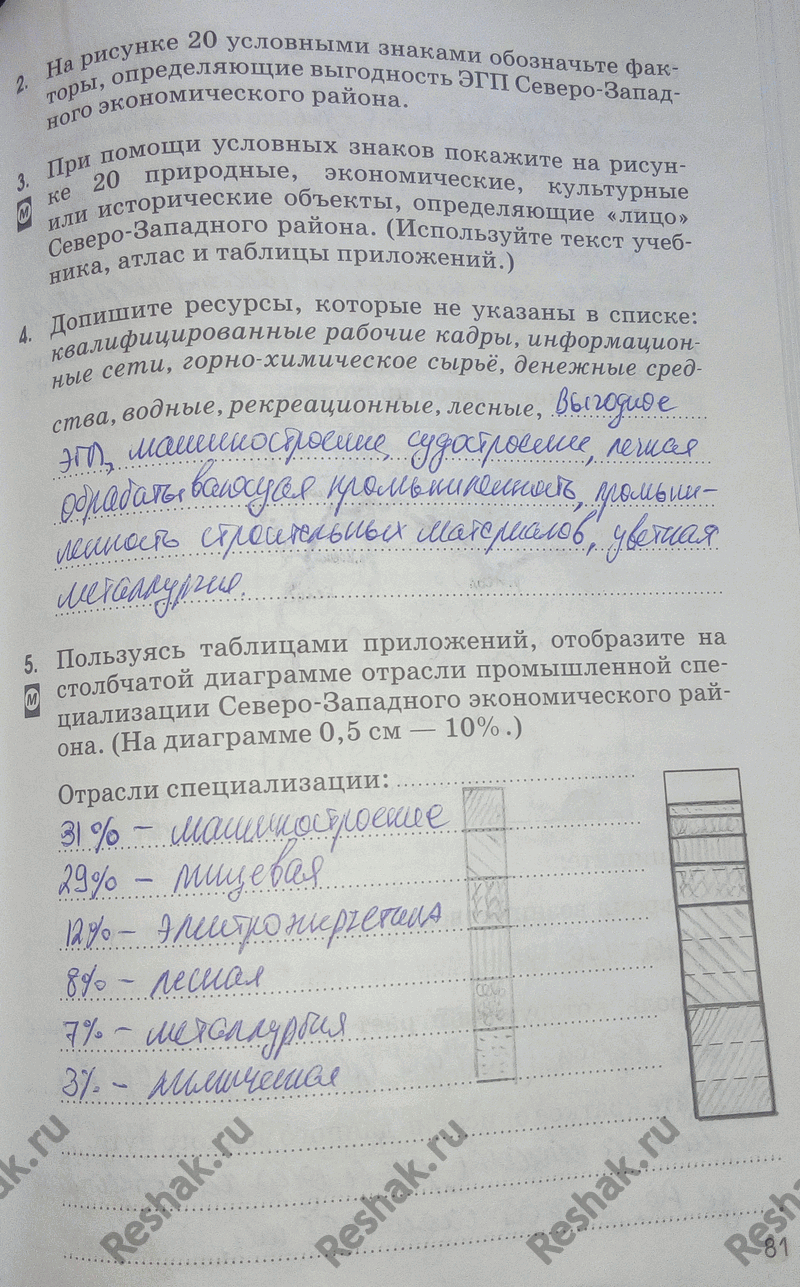 2. На рисунке 20 условными знаками обозначьте фак-
торы, определяющие выгодность ЭГП Северо-Запад-
ного экономического района.
3. При помощи условных знаков покажите на рисун-
М ке 20 природные, экономические, культурные
или исторические объекты, определяющие «лицо»
Северо-Западного района. (Используйте текст учеб-
ника, атлас и таблицы приложений.)
4. Допишите ресурсы, которые не указаны в списке:
квалифицированные рабочие кадры, информацион-
ные сети, горно-химическое сырьё, денежные сред-
ства, водные, рекреационные, лесные, Выгодное
ЭГП, машиностроение, судостроение, легкая
обрабатывающая промышленность, промыш-
ленность строительных материалов, цветная
металлургия.
5. Пользуясь таблицами приложений, отобразите на
М столбчатой диаграмме отрасли промышленной спе-
циализации Северо-Западного экономического рай-
она. (На диаграмме 0,5 см — 10%.)
Отрасли специализации:
31% – машиностроение
29% – пищевая
12% – электроэнергетика
8% – лесная
7% – металлургия
3% – химическая
Reshak.ru
Reshak.ru
Reshak.ru
Reshak.ru
81